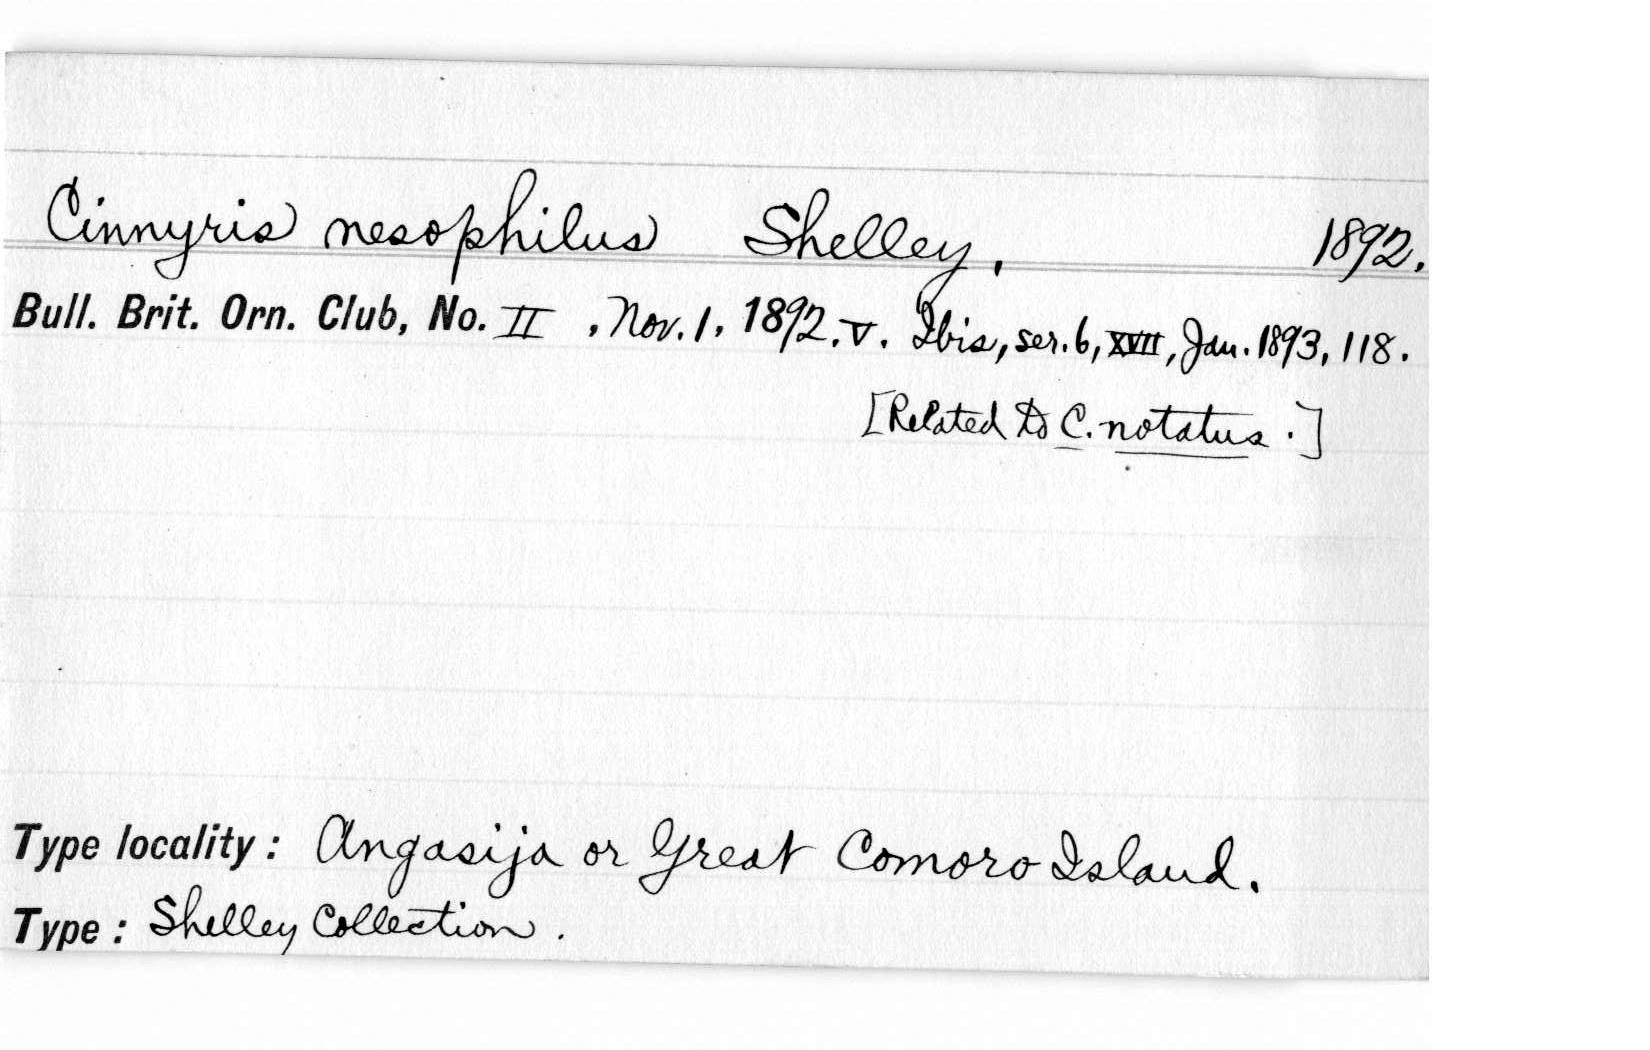 Cinnyris nesophilus Shelley, 1892.
Bull. Brit. Orn. Club, No. II , Nov. 1, 1892. V. Ibis, ser. 6, XVII, Jan. 1893, 118.
[Related to C. notatus.]
Type locality: Angasija or Great Comoro Island.
Type: Shelley Collection.